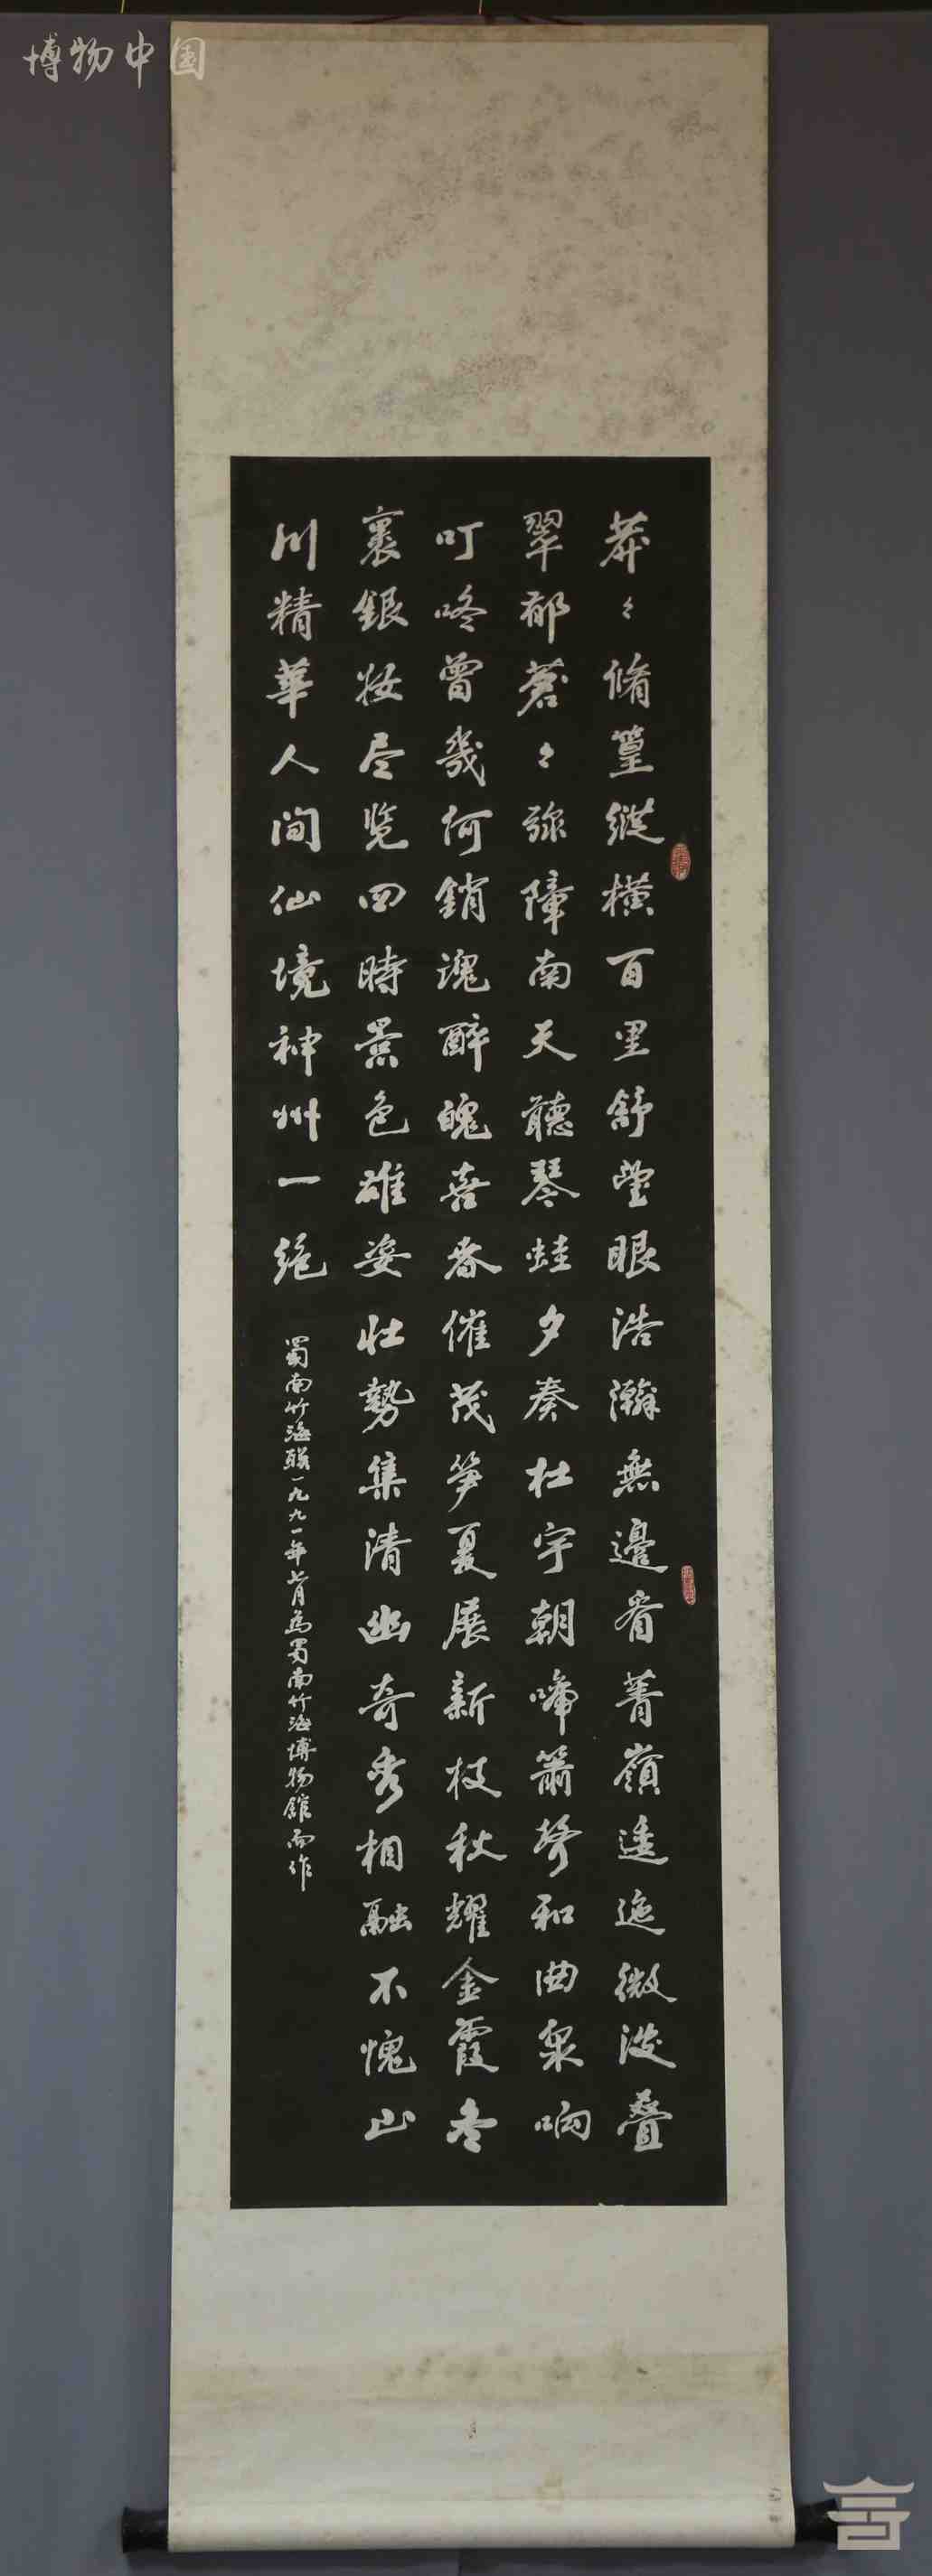 博物中国
莽々脩篁縱橫百里舒望眼浩瀚無邊看菁嶺逶迤微波叠
翠郁蒼々弥障南天聽琴蛙夕奏杜宇朝啼簫聲和曲泉响
叮咚曾幾何銷魂醉魄喜春催茂笋夏展新枝秋耀金霞冬
裹銀妝尽览四時景色雄姿壮勢集清幽奇秀相融不愧山
川精華人间仙境神州一绝
蜀南竹海联一九九一年七月為蜀南竹海博物館而作